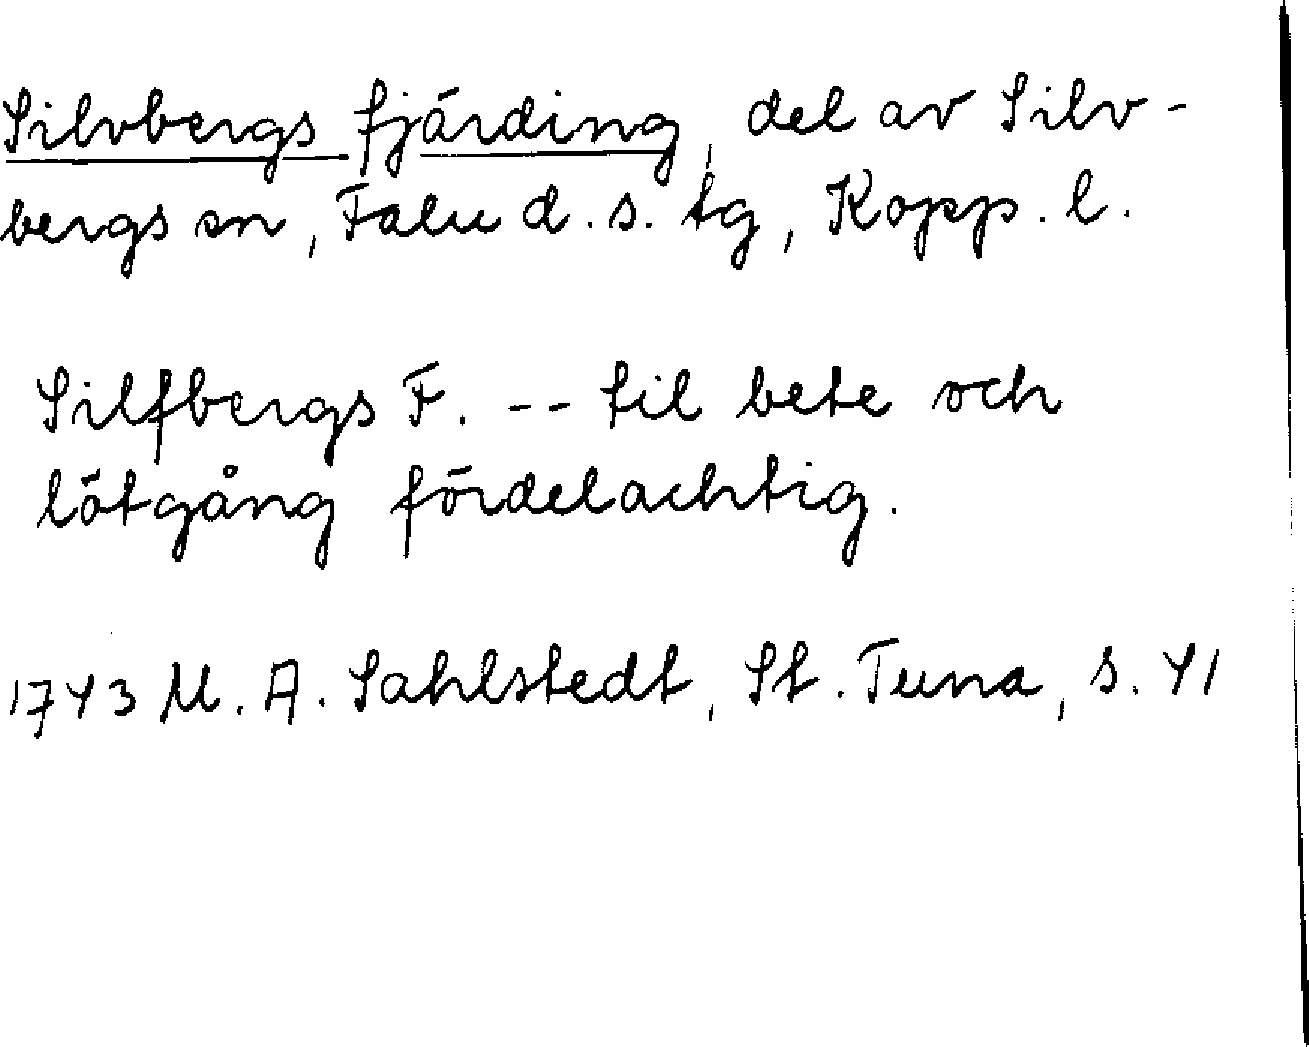 Silvbergs fjärding, del av Silv-
bergs sn, Falu d. s. tg, Kopp. l.
Silfbergs F. -- til bete och
lötgång fördelachtig.
1743 M. A. Sahlstedt, St. Tuna, s. 41